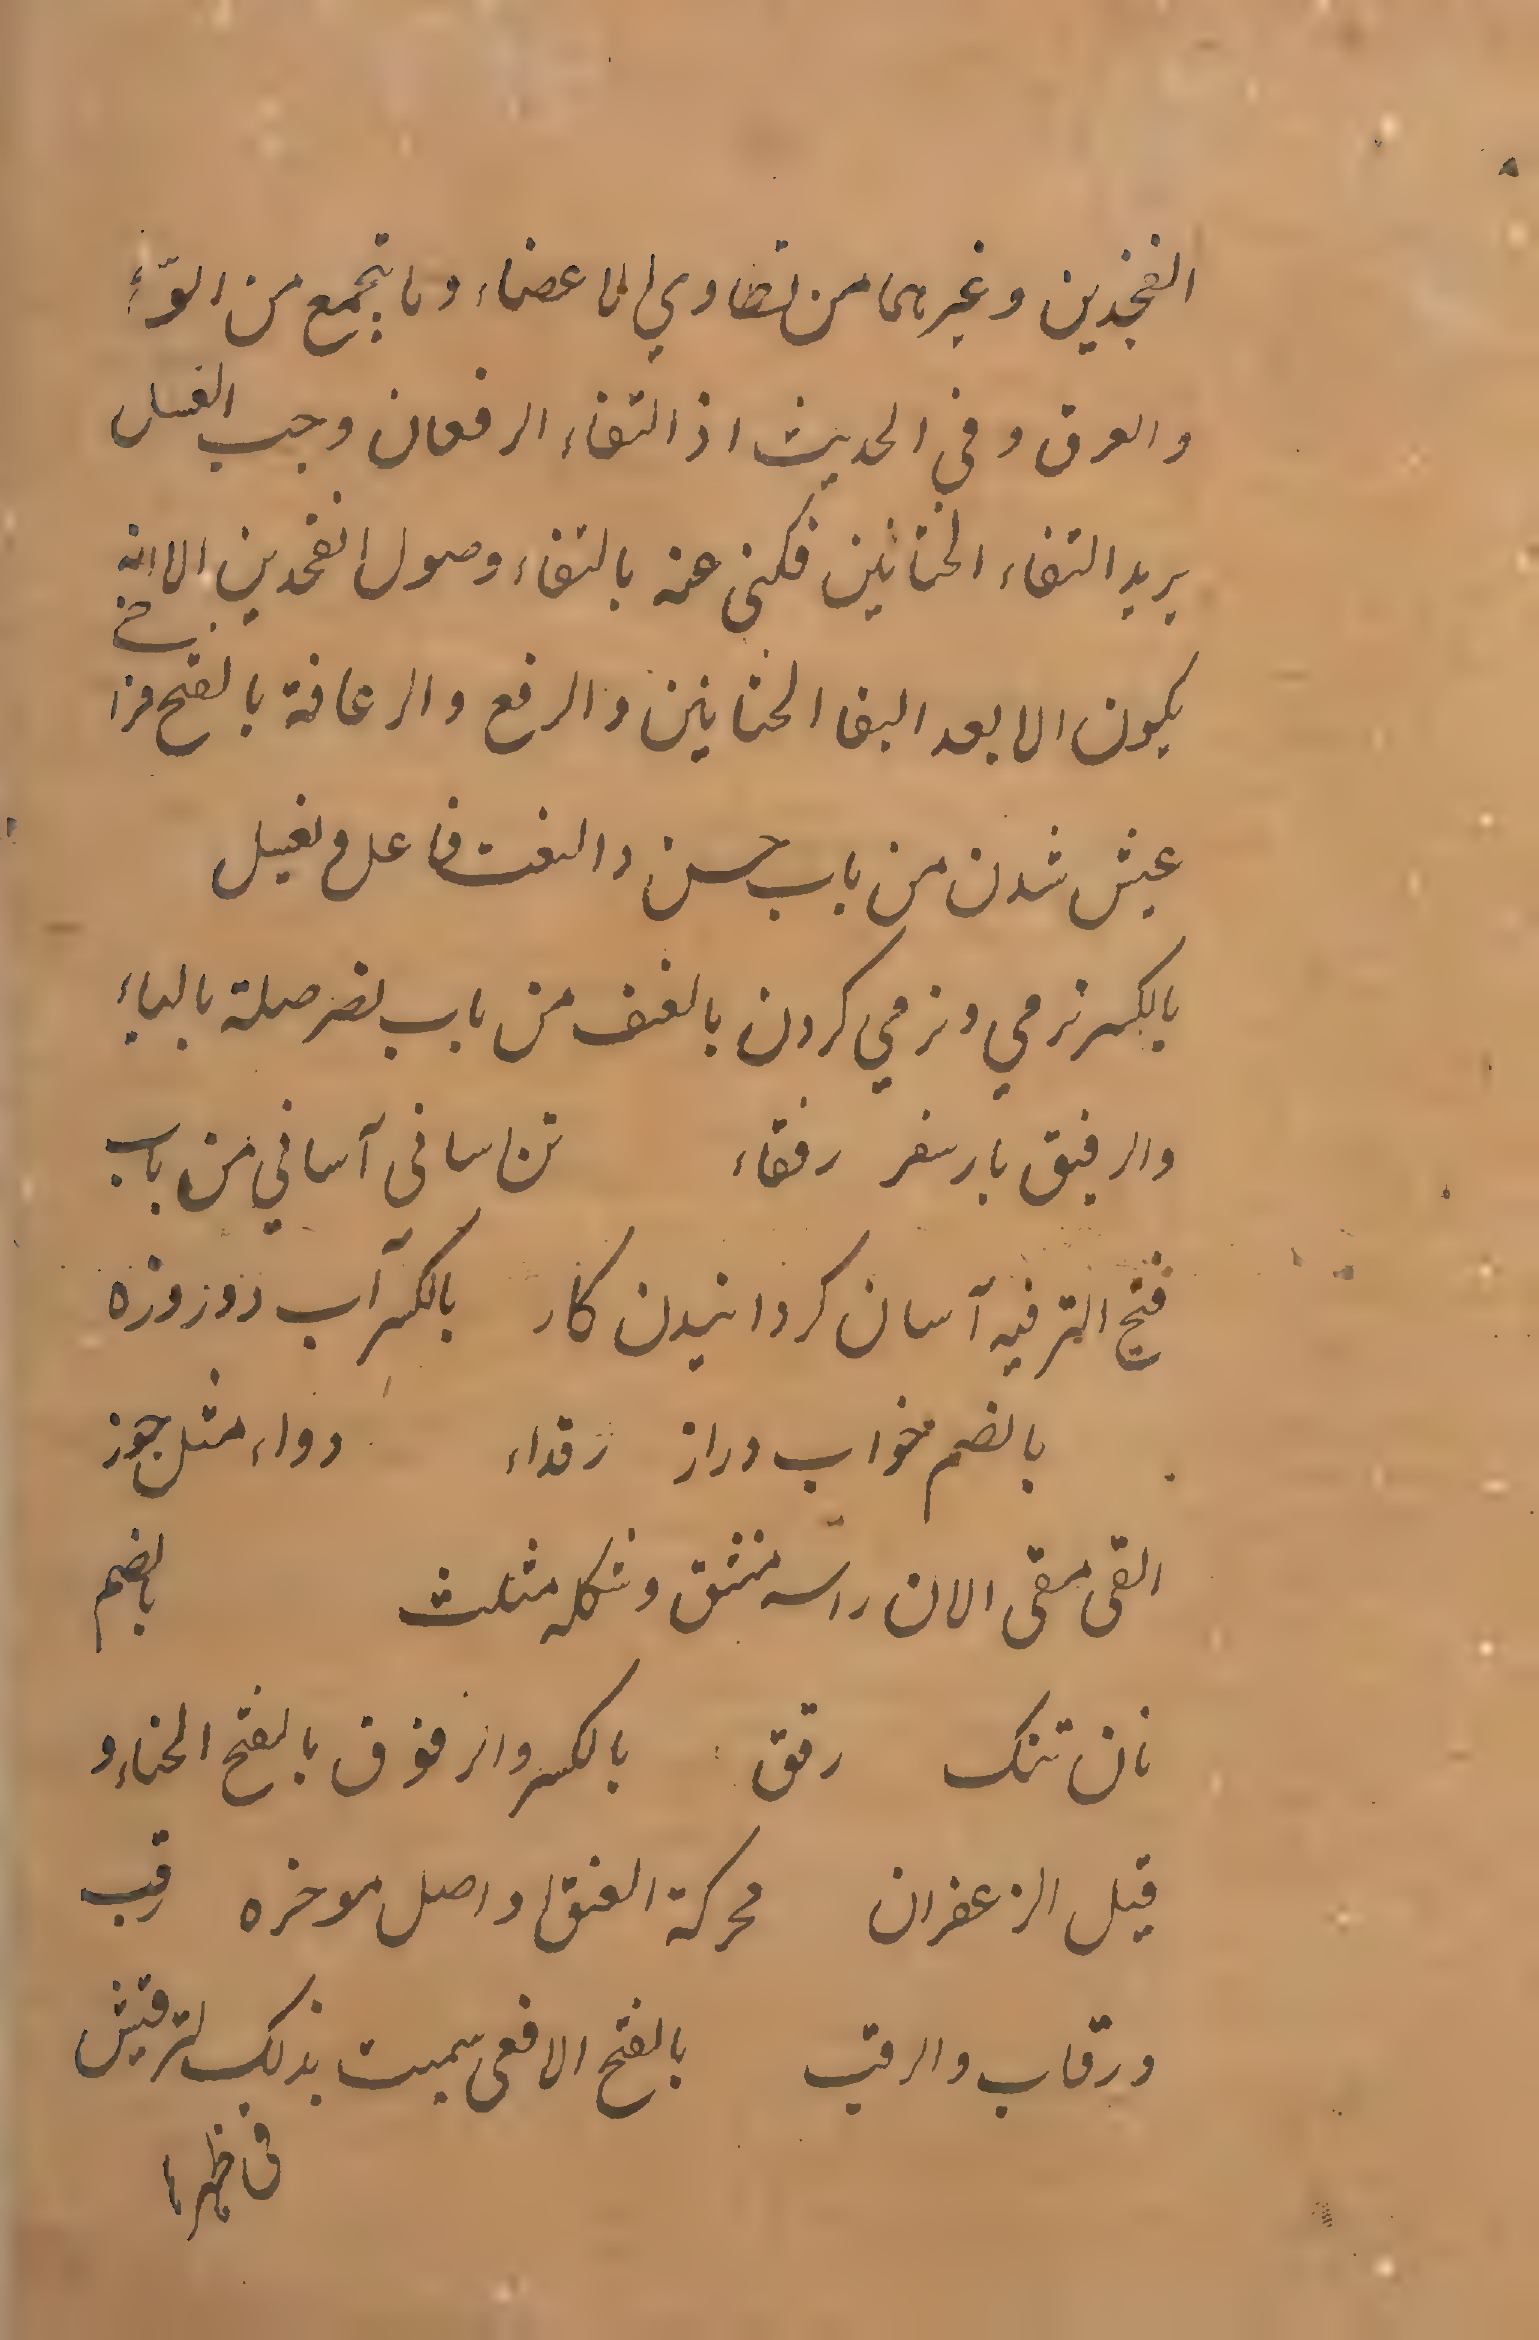 الفخذين وغيرهما من تطاوي الاعضاء وما يجتمع من
والعرق وفي الحديث اذ التقاء الرفعان وجب الغسل
يريد التقاء الختانين فكنى عنه بالتقاء وصول الفخدين الا انه
يكون الا بعد التقا الختانين والرفع والرغافة بالفتح فراخ
عيش شدن من باب حسن والنعت فاعل وفعيل
بالكسر نرمي ونرمي كردن بالعنف من باب نصر صلة بالباء
والرفيق يار سفر رفقاء تن اسانى آساني من باب
فتح الترفيه آسان كردانيدن كار بالكسر آب دوزوزه
بالضم خواب دراز رقداء دواء مثل جوز
القى مقى الان راسه منشق وشكله مثلث بالضم
نان تنک رقق بالكسر والرقوق بالفتح الحناء و
قيل الزعفران محركة العنق او اصل موخره رقب
ورقاب والرقب بالفتح الافعى سميت بذلک لترقيش
فى ظهرها